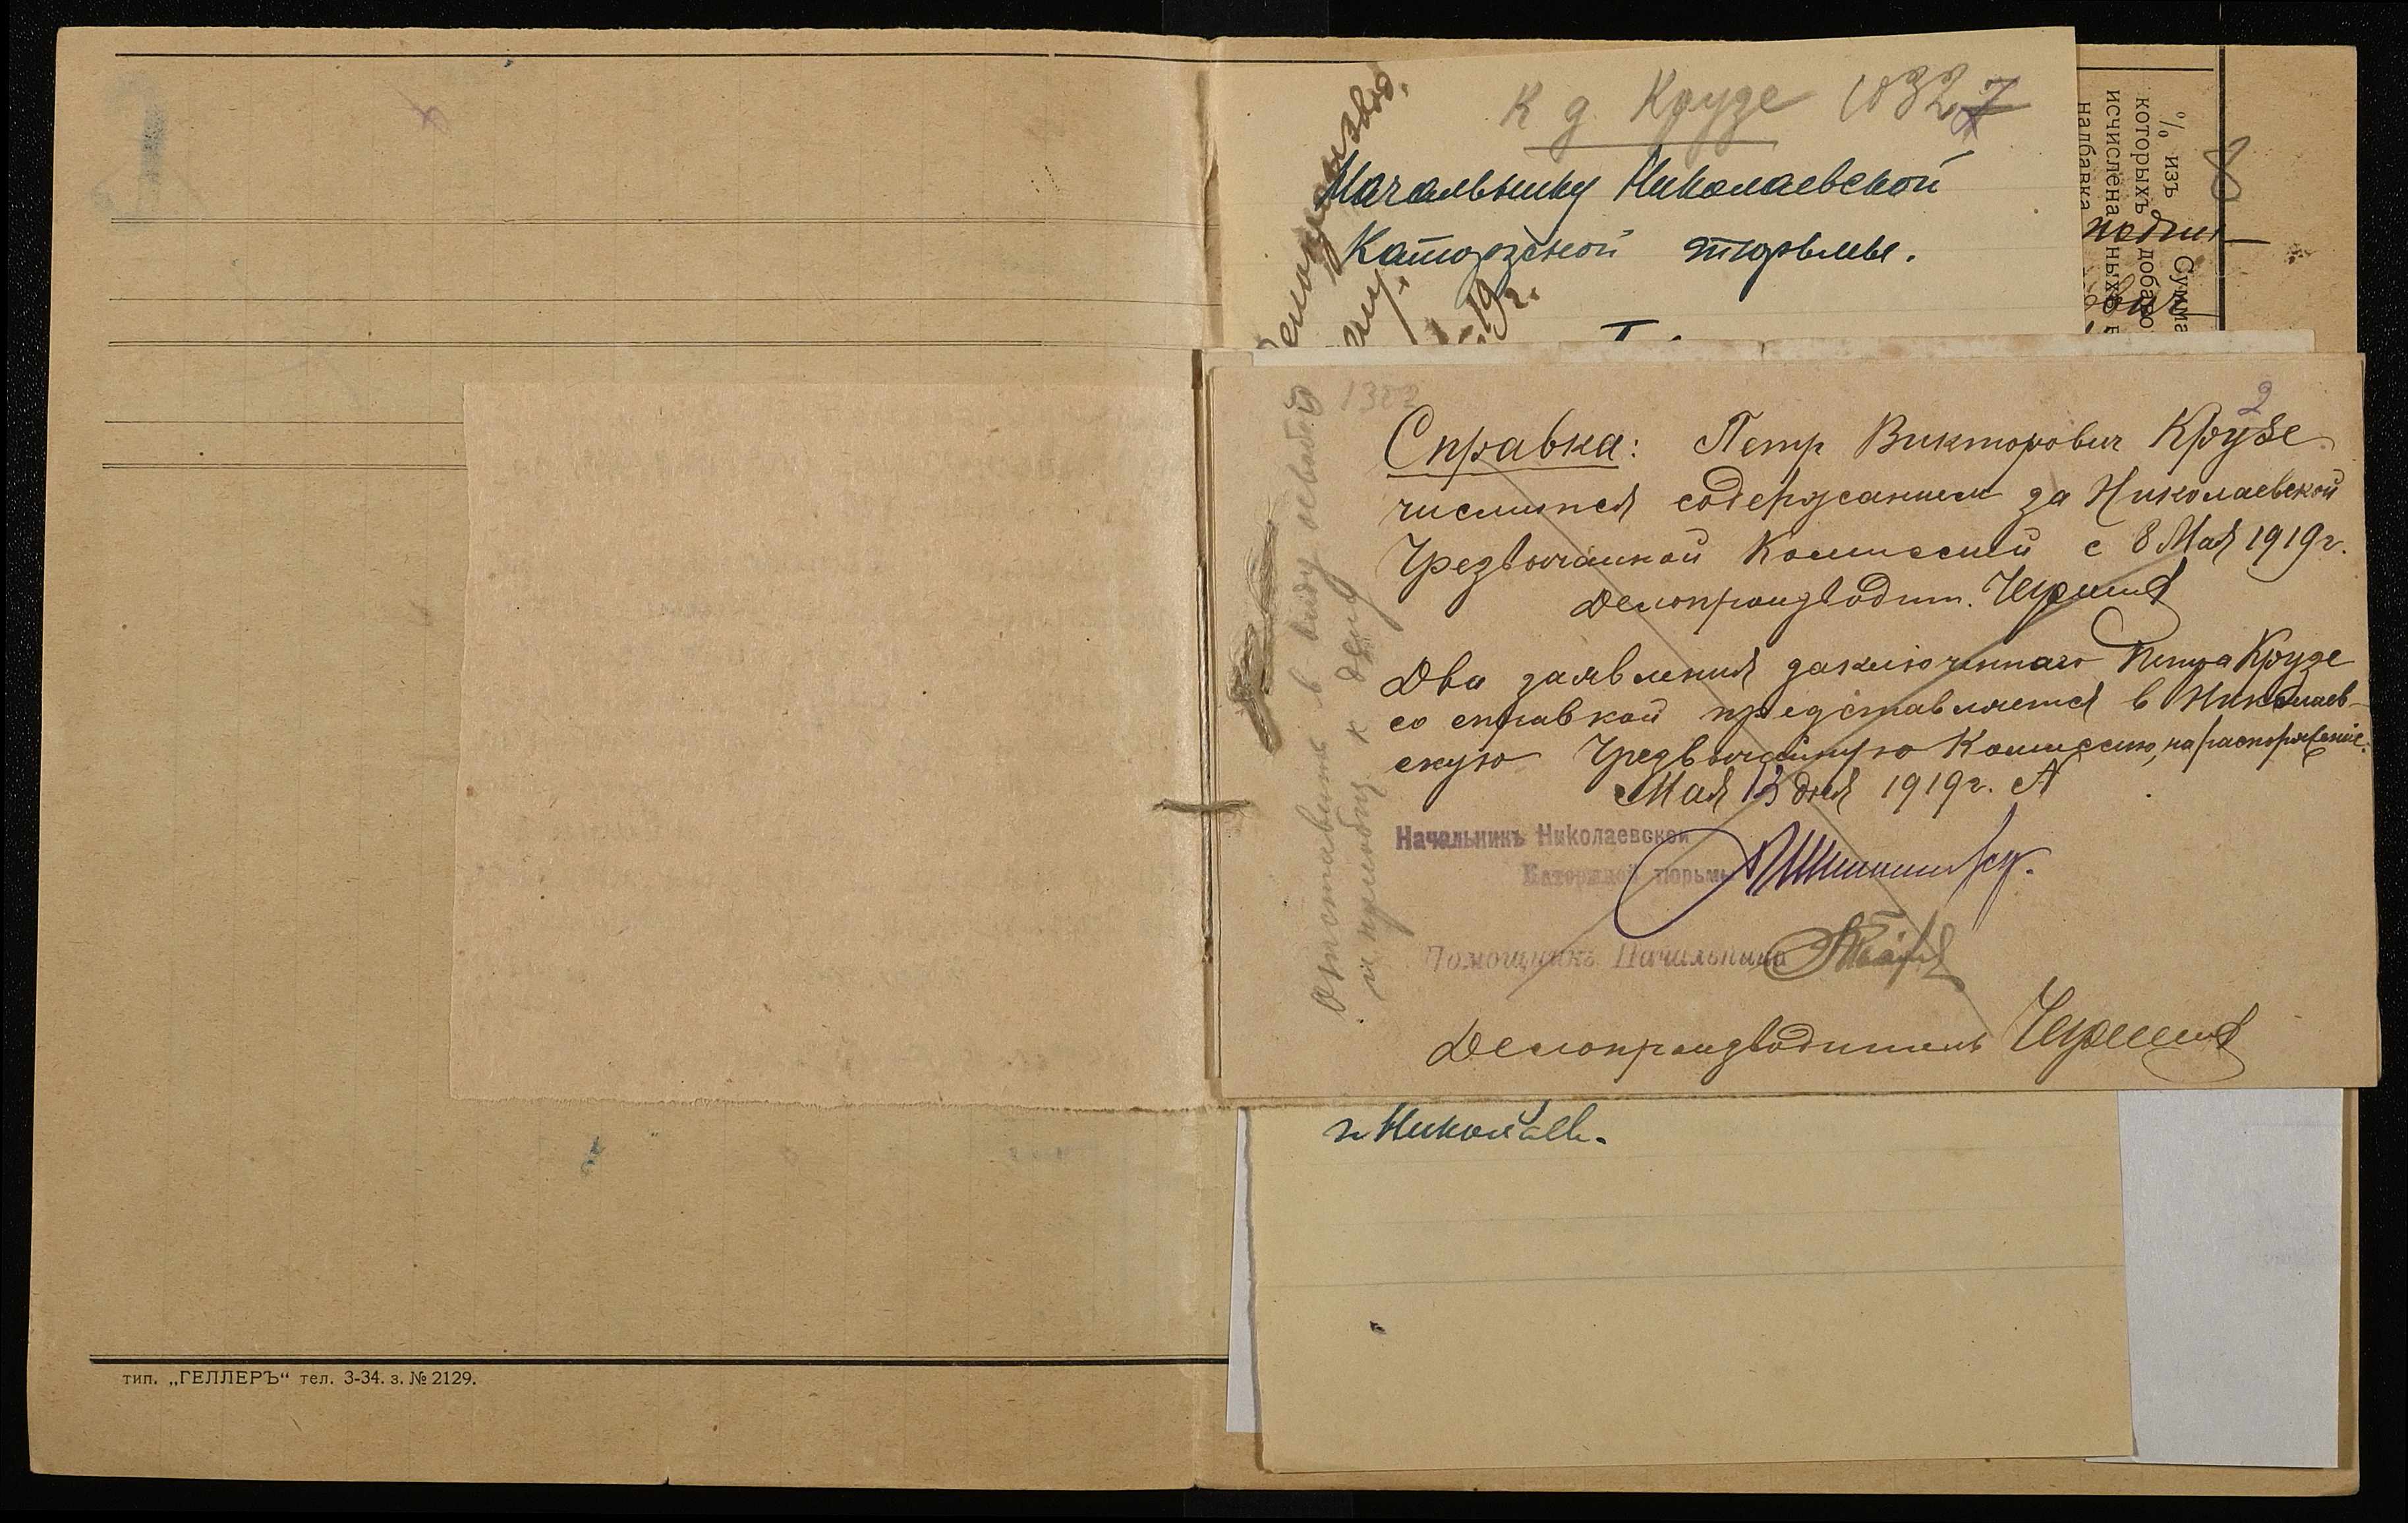 К д. Крузе 1032
Начальнику Николаевской
Каторжной тюрьмы.
19г.
8
% изъ
которыхъ
исчислена
надбавка
Сумма
1322
2
Справка: Петр Викторович Крузе
числится содержанием за Николаевской
Чрезвычайной Комиссией с 8 Мая 1919г.
Делопроизводит.
Два заявления заключеннаго Петра Крузе
со справкой представляется в Николаев-
скую Чрезвычайную Комиссию, на распоряжение.
Мая 13 дня 1919г.
Начальникъ Николаевской
Каторжной тюрьмы
Помощникъ Начальника
Делопроизводитель
Оставить в виду
и приобщ. к делу
г. Николаев.
тип. „ГЕЛЛЕРЪ“ тел. 3-34. з. № 2129.